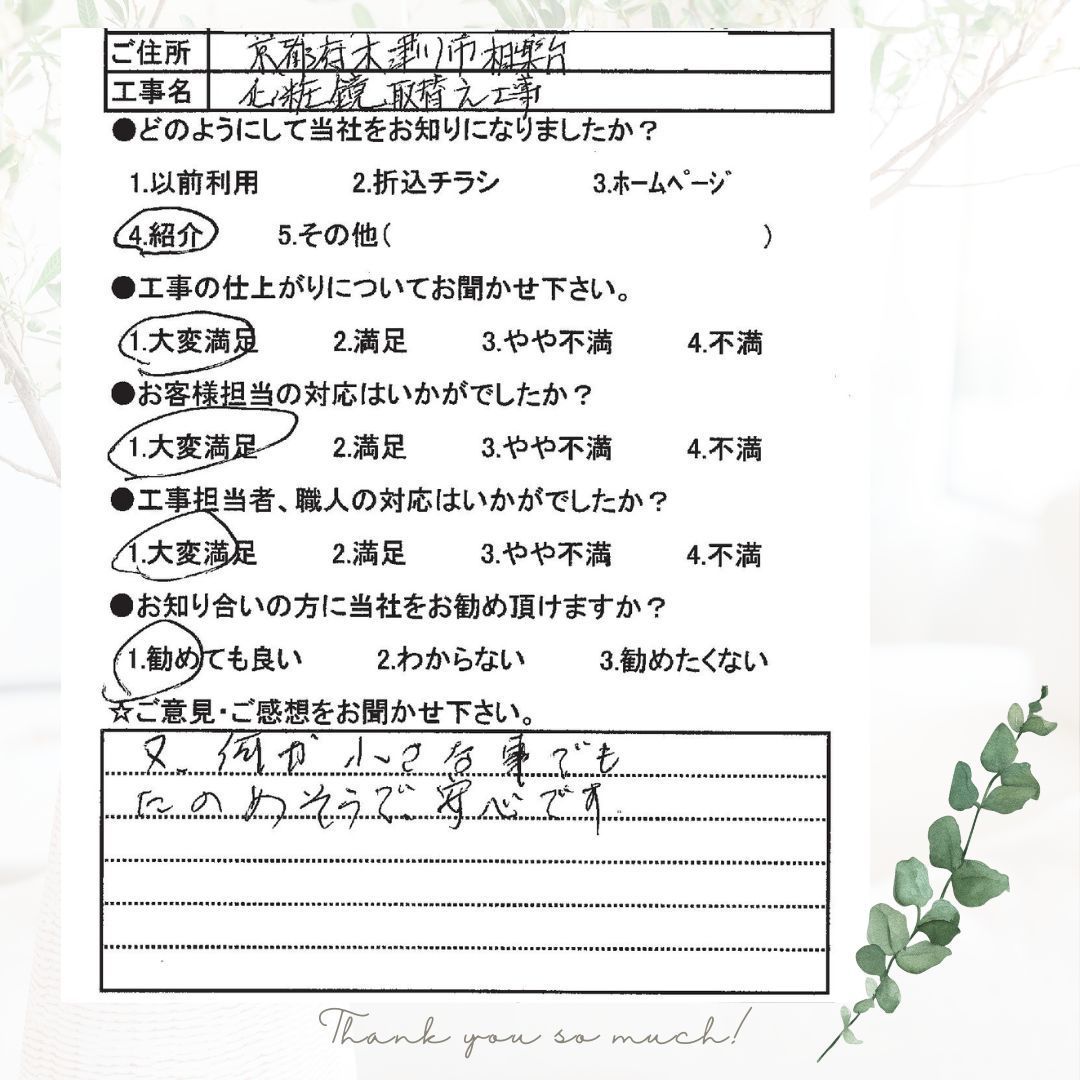 ご住所 京都府木津川市相楽台
工事名 化粧鏡取替え工事
●どのようにして当社をお知りになりましたか？
1.以前利用 2.折込チラシ 3.ﾎｰﾑﾍﾟｰｼﾞ
4.紹介 5.その他( )
●工事の仕上がりについてお聞かせ下さい。
1.大変満足 2.満足 3.やや不満 4.不満
●お客様担当の対応はいかがでしたか？
1.大変満足 2.満足 3.やや不満 4.不満
●工事担当者、職人の対応はいかがでしたか？
1.大変満足 2.満足 3.やや不満 4.不満
●お知り合いの方に当社をお勧め頂けますか？
1.勧めても良い 2.わからない 3.勧めたくない
☆ご意見・ご感想をお聞かせ下さい。
又、何か小さな事でも
たのめそうで、安心です。
Thank you so much!